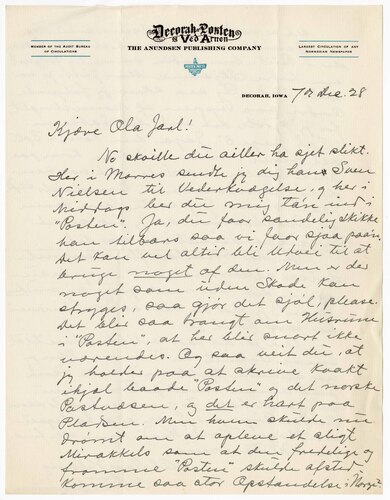 Decorah-Posten
og Ved Arnen
THE ANUNDSEN PUBLISHING COMPANY
MEMBER OF THE AUDIT BUREAU
OF CIRCULATIONS
LARGEST CIRCULATION OF ANY
NORWEGIAN NEWSPAPER
DECORAH, IOWA 7de Dec. 28
Kjære Ola Jarl!
No skulde du ailler ha sjet slikt.
Her i Morres sendte jeg dig hans Sven
Nielsen til Vederkvægelse, og her i
Middags ber du mig ta'n ind i
"Posten". Ja, du faar sandelig skikke
han tilbars saa vi faar sjaa paa'n.
Det kan vel altid bli Udvei til at
bruge noget af den. Men er der
noget som uden Skade kan
stryges, saa gjør det sjøl, please.
Det blir saa trangt om Husrum
i "Posten", at her blir snart ikke
værendes. Og saa veit du, at
jeg holder paa at skrive kvakt
ihjel baade "Posten" og det norske
Postvæsen, og det er hart paa
Pladsen. Men hvem skulde nu
drømt om at opleve et sligt
Mirakkels som at den fredelige og
fromme "Posten" skulde afsted-
komme saa stor Opstandelse i Norge